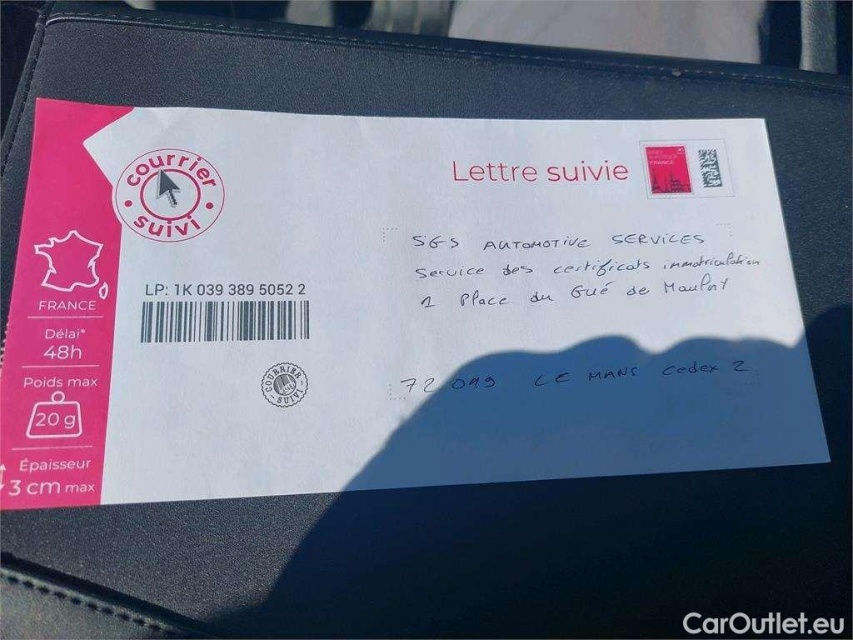 courrier suivi
Lettre suivie
FRANCE
Délai*
48h
Poids max
20 g
Épaisseur
3 cm max
LP: 1K 039 389 5052 2
COURRIER SUIVI
SGS AUTOMOTIVE SERVICES
Service des certificats immatriculation
1 Place du Gué de Maulny
72019 LE MANS Cedex 2
CarOutlet.eu